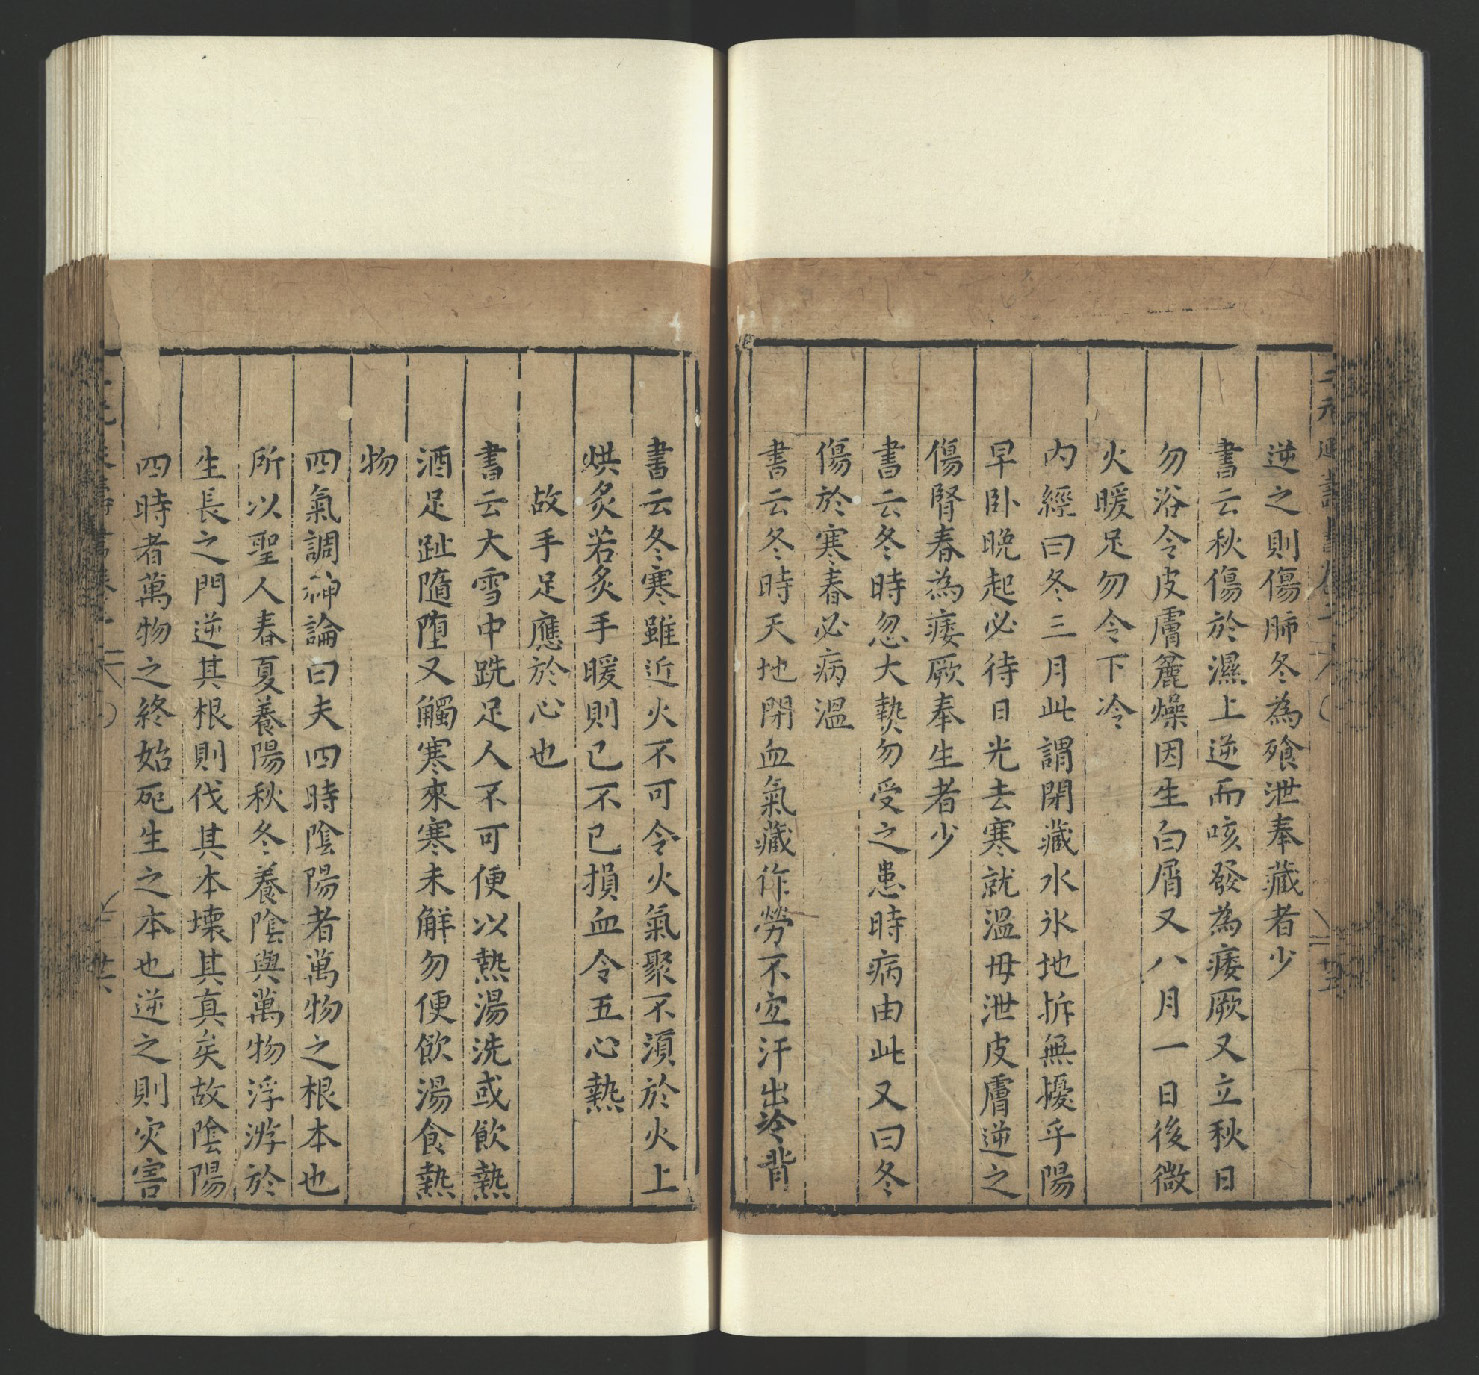 逆之則傷肺冬為飱泄奉藏者少
書云秋傷於濕上逆而咳發為痿厥又立秋日
勿浴令皮膚麄燥因生白屑又八月一日後微
火暖足勿令下冷
內經曰冬三月此謂閉藏水氷地拆無擾乎陽
早卧晚起必待日光去寒就溫毋泄皮膚逆之
傷腎春為痿厥奉生者少
書云冬時忽大熱勿受之患時病由此又曰冬
傷於寒春必病溫
書云冬時天地閉血氣藏作勞不宜汗出冷背
書云冬寒雖近火不可令火氣聚不須於火上
烘炙若炙手暖則已不已損血令五心熱
故手足應於心也
書云大雪中跣足人不可便以熱湯洗或飲熱
酒足趾隨堕又觸寒來寒未解勿便飲湯食熱
物
四氣調神論曰夫四時陰陽者萬物之根本也
所以聖人春夏養陽秋冬養陰與萬物浮游於
生長之門逆其根則伐其本壞其真矣故陰陽
四時者萬物之終始死生之本也逆之則灾害